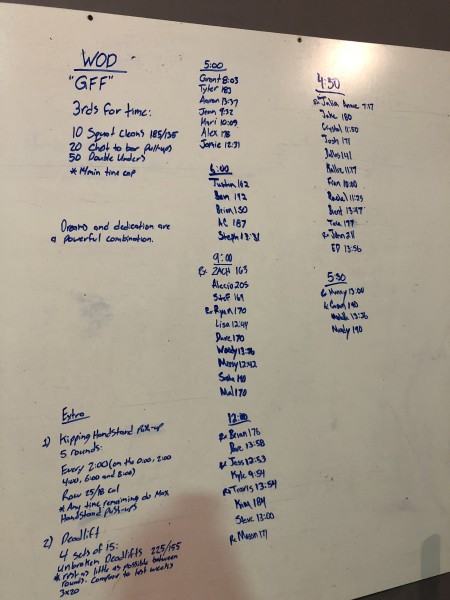 WOD
"GFF"
3rds for time:
10 Squat Cleans 185/135
20 Chest to bar Pull-ups
50 Double Unders
*14min time cap
Dreams and dedication are
a powerful combination.
Extra
1) Kipping Handstand Push-up
5 rounds:
Every 2:00 (on the 0:00, 2:00
4:00, 6:00 and 8:00)
Row 25/18 cal
*Any time remaining do Max
Handstand Push-ups
2) Deadlift
4 sets of 15:
unbroken Deadlifts 225/155
*rest as little as possible between
rounds. Compare to last weeks
3x20
5:00
Grant 8:03
Tyler 183
Aaron 13:37
Jenn 9:32
Mari 10:09
Alex 178
Jamie 12:31
6:00
Justin 162
Bam 192
Brian 150
AC 187
Steph 13:31
9:00
Rx ZACH 163
Alecia 205
Stef 169
Rx Ryan 170
Lisa 12:44
Dave 170
Woody 13:36
Missy 12:42
Sasha 190
Mal 170
12:00
Rx Brian 176
Dave 13:58
Rx Jess 12:53
Kyle 9:54
Rx Travis 13:54
Kim 184
Steve 13:00
Rx Mason 171
4:30
Rx Julia Anne 7:17
Jake 180
Crystal 11:50
Josh 171
Jules 141
11:17
Fran 10:00
Rachel 11:23
Brent 13:47
199
Rx John 211
ED 13:56
5:30
13:04
190
13:36
Mandy 190